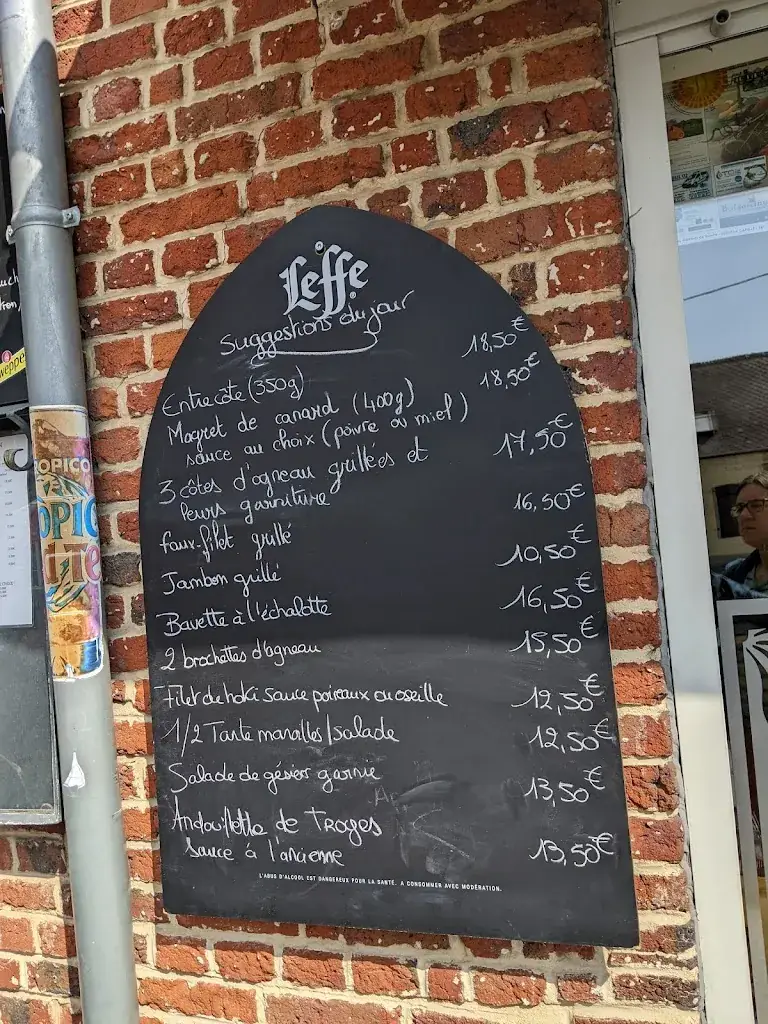 Leffe
Suggestions du jour
Entrecôte (350g) 18,50€
Magret de canard (400g) 18,50€
sauce au choix (poivre ou miel)
3 côtes d'agneau grillées et 17,50€
leurs garniture
faux-filet grillé 16,50€
Jambon grillé 10,50€
Bavette à l'échalotte 16,50€
2 brochettes d'agneau 15,50€
Filet de hoki sauce poireaux ou oseille 12,50€
1/2 Tarte maroilles/salade 12,50€
Salade de gésier garnie 13,50€
Andouillette de Troyes
sauce à l'ancienne 13,50€
L'ABUS D'ALCOOL EST DANGEREUX POUR LA SANTÉ. A CONSOMMER AVEC MODÉRATION.
OPICO
OPIC
weppe